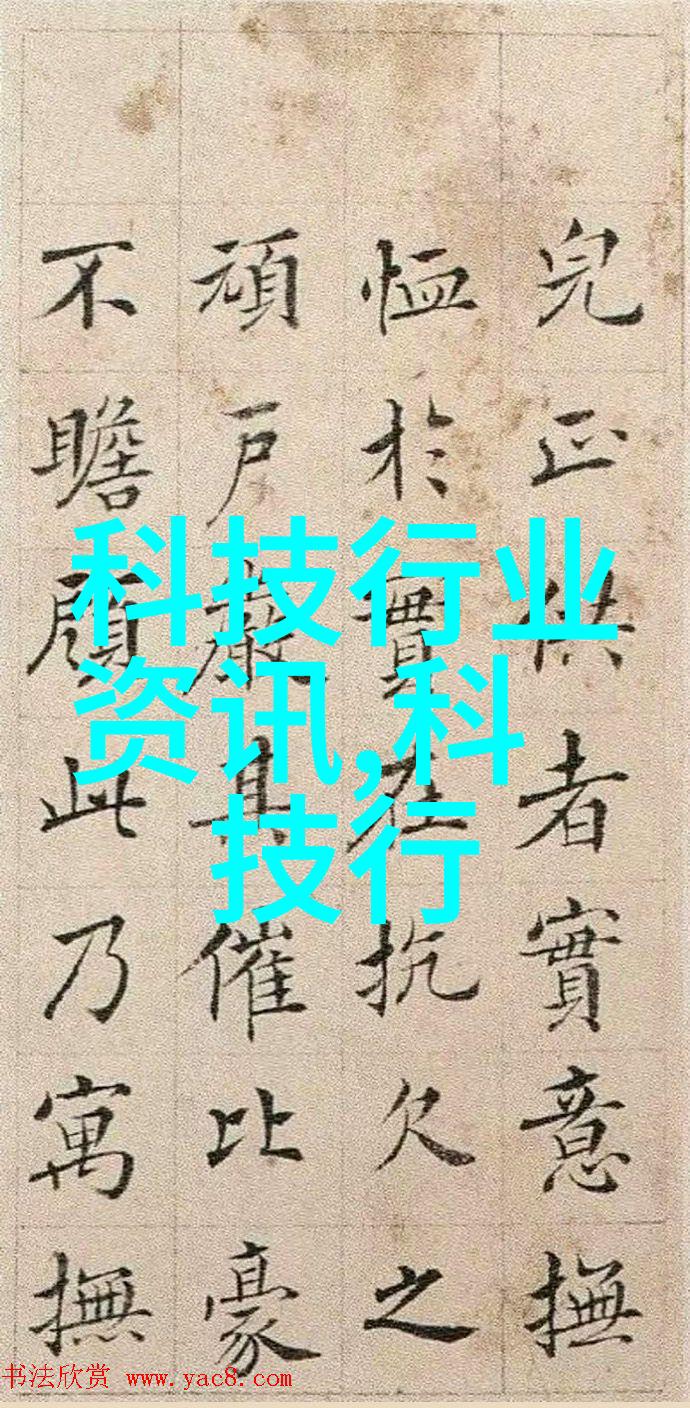 皃正供者實意撫
恤於實在抗欠之
頑戶嚴其催比豪
不瞻顧此乃寓撫
科技行业
资讯,科
技行
书法欣赏 www.yac8.com